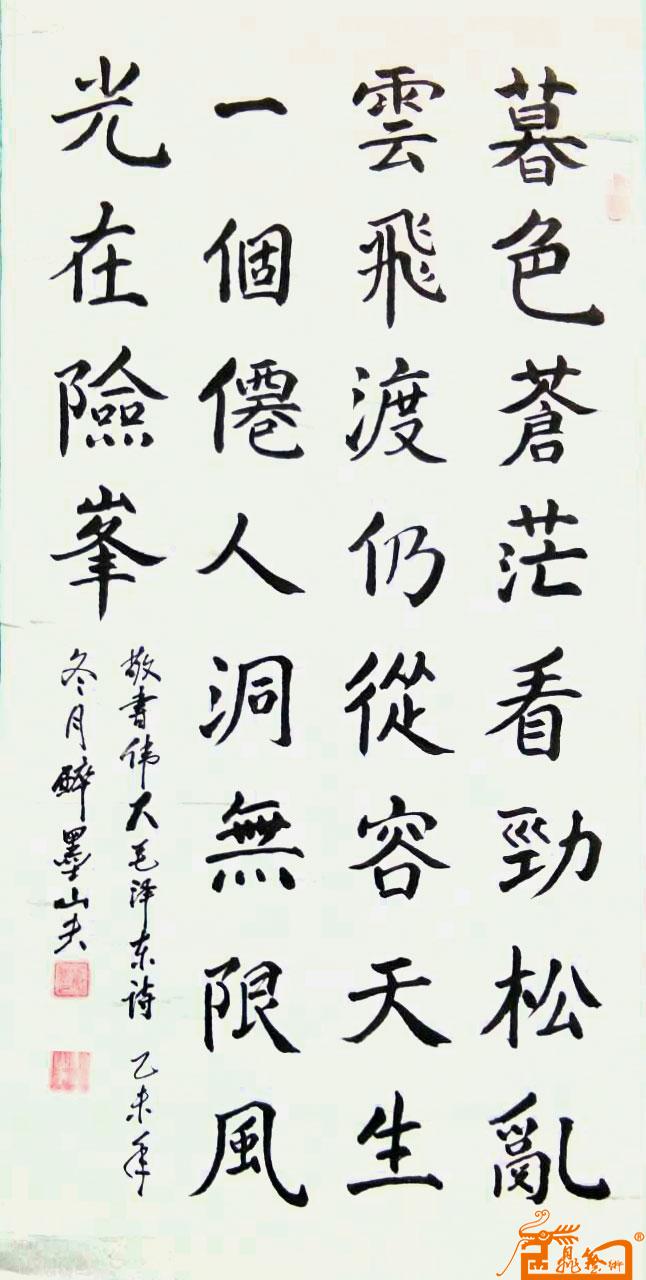 暮色蒼茫看勁松亂
雲飛渡仍從容天生
一個僊人洞無限風
光在險峯
敬書伟大毛泽东诗 乙未年
冬月醉墨山夫